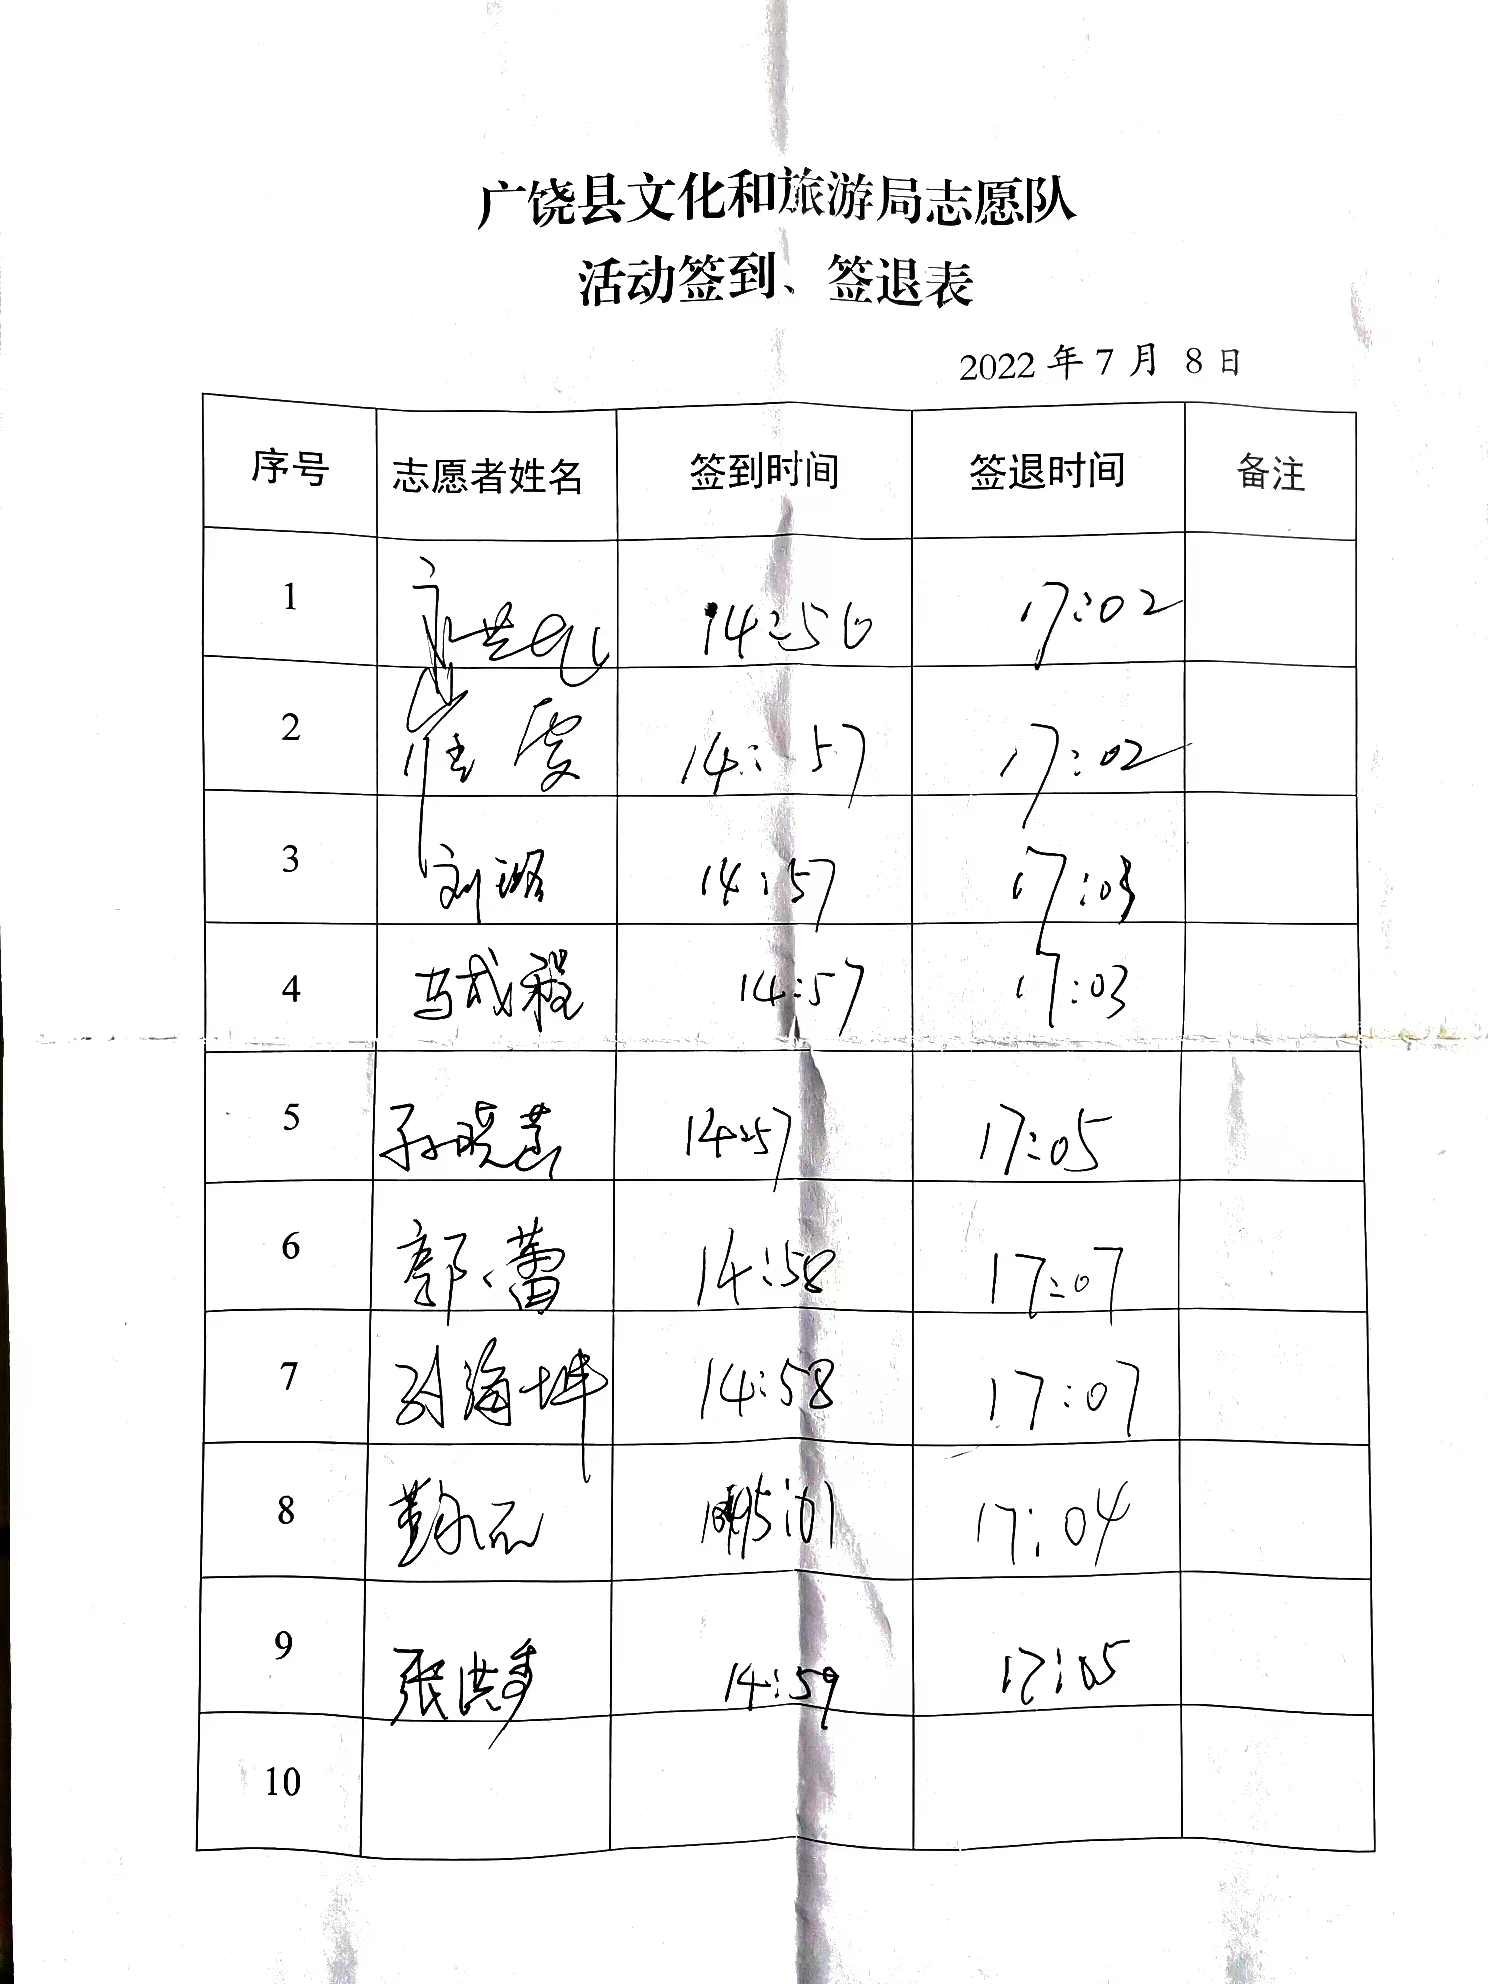 广饶县文化和旅游局志愿队
活动签到、签退表
2022年7月 8日
序号 志愿者姓名 签到时间 签退时间 备注
1 14:56 17:02
2 崔雯 14:57 17:02
3 刘璐 14:57 17:03
4 马成程 14:57 17:03
5 孙晓燕 14:57 17:05
6 郭蕾 14:58 17:07
7 刘海坤 14:58 17:07
8 15:01 17:04
9 张洪 14:59 17:05
10